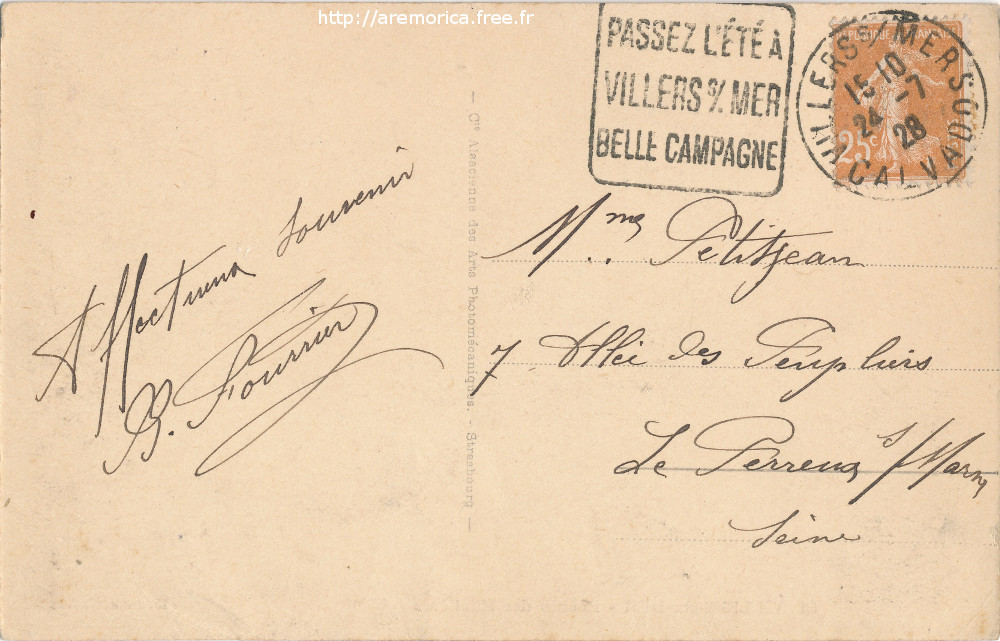 http://aremorica.free.fr
PASSEZ L'ÉTÉ À
VILLERS S/ MER
BELLE CAMPAGNE
VILLERS S/ MERS
15 10
24 -7
28
CALVADOS
RÉPUBLIQUE FRANÇAISE
25c
Affectueux souvenir
B. Fournier
— Cie Alsacienne des Arts Photomécaniques. - Strasbourg —
Mme Petitjean
7 Allée des Peupliers
Le Perreux s/Marne
Seine